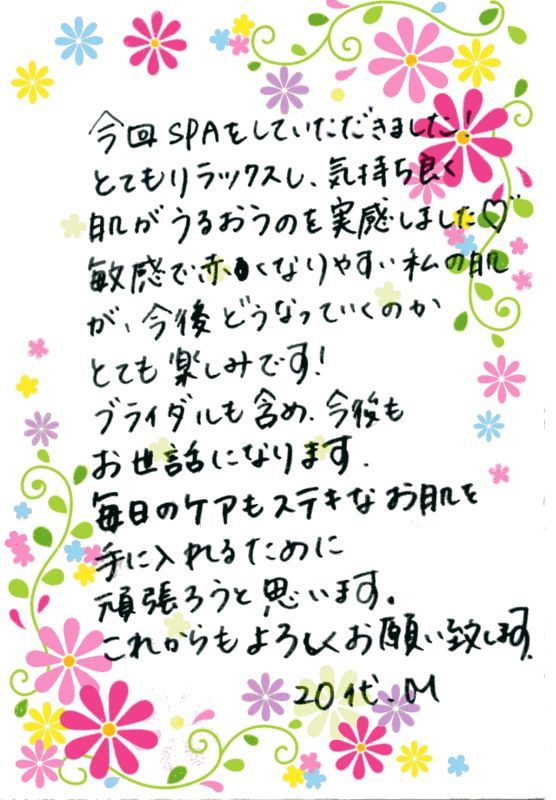 今回SPAをしていただきました!
とてもリラックスし、気持ち良く
肌がうるおうのを実感しました♡
敏感で赤くなりやすい私の肌
が、今後どうなっていくのか
とても楽しみです!
ブライダルも含め、今後も
お世話になります。
毎日のケアもステキなお肌を
手に入れるために
頑張ろうと思います。
これからもよろしくお願い致します。
20代.M